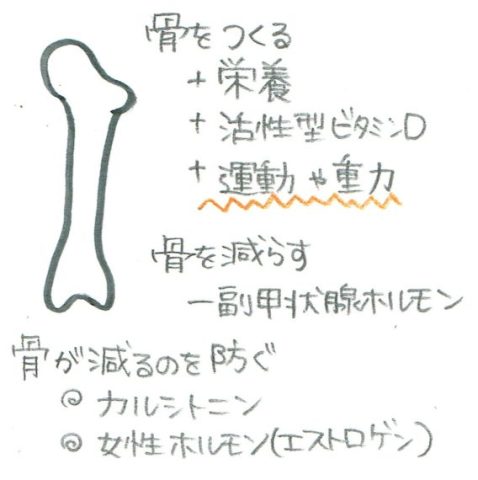 骨をつくる
+ 栄養
+ 活性型ビタミンD
+ 運動や重力
骨を減らす
ー副甲状腺ホルモン
骨が減るのを防ぐ
◎ カルシトニン
◎ 女性ホルモン(エストロゲン)